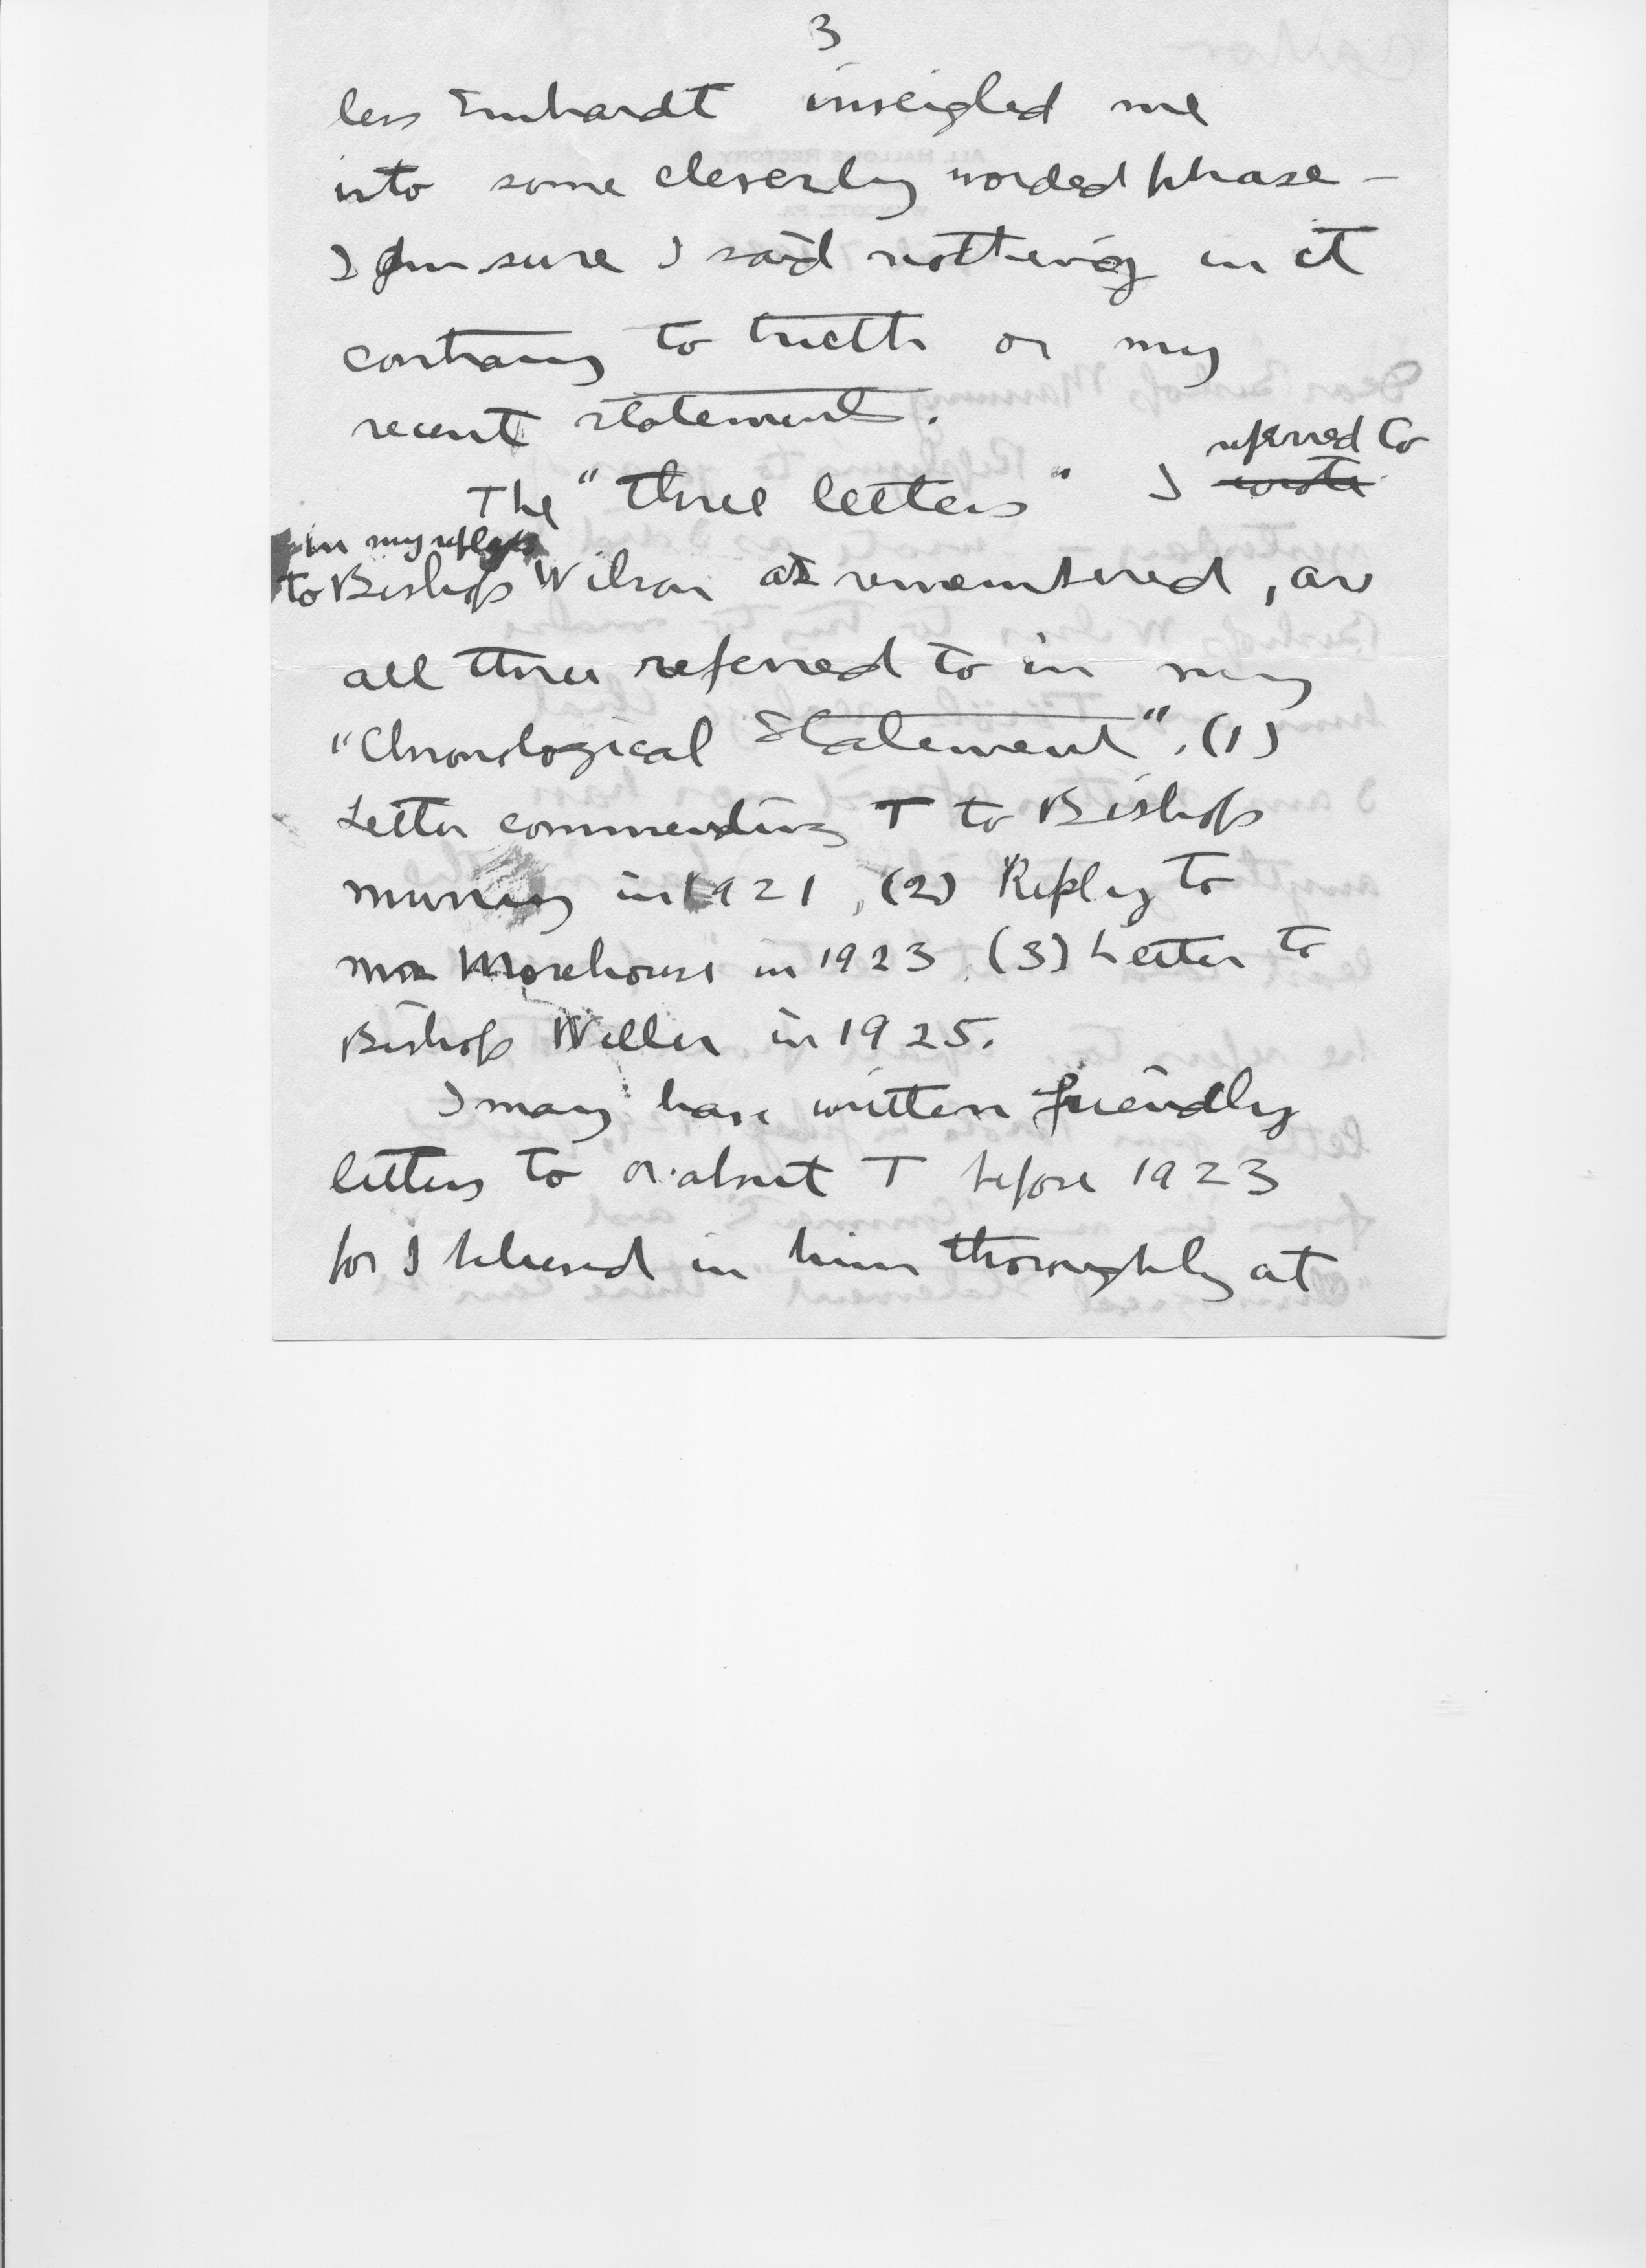 3
less Emhardt inveigled me
into some cleverly worded phrase –
I am sure I said nothing in it
contrary to truth or my
recent statement.
referred to
The "three letters" I wrote
in my reply
to Bishop Wilson as remembered, are
all three referred to in my
"Chronological Statement". (1)
Letter commending T to Bishop
Murray in 1921, (2) Reply to
Morehouse in 1923. (3) Letter to
Bishop Weller in 1925.
I may have written friendly
letters to or about T before 1923
for I believed in him thoroughly at